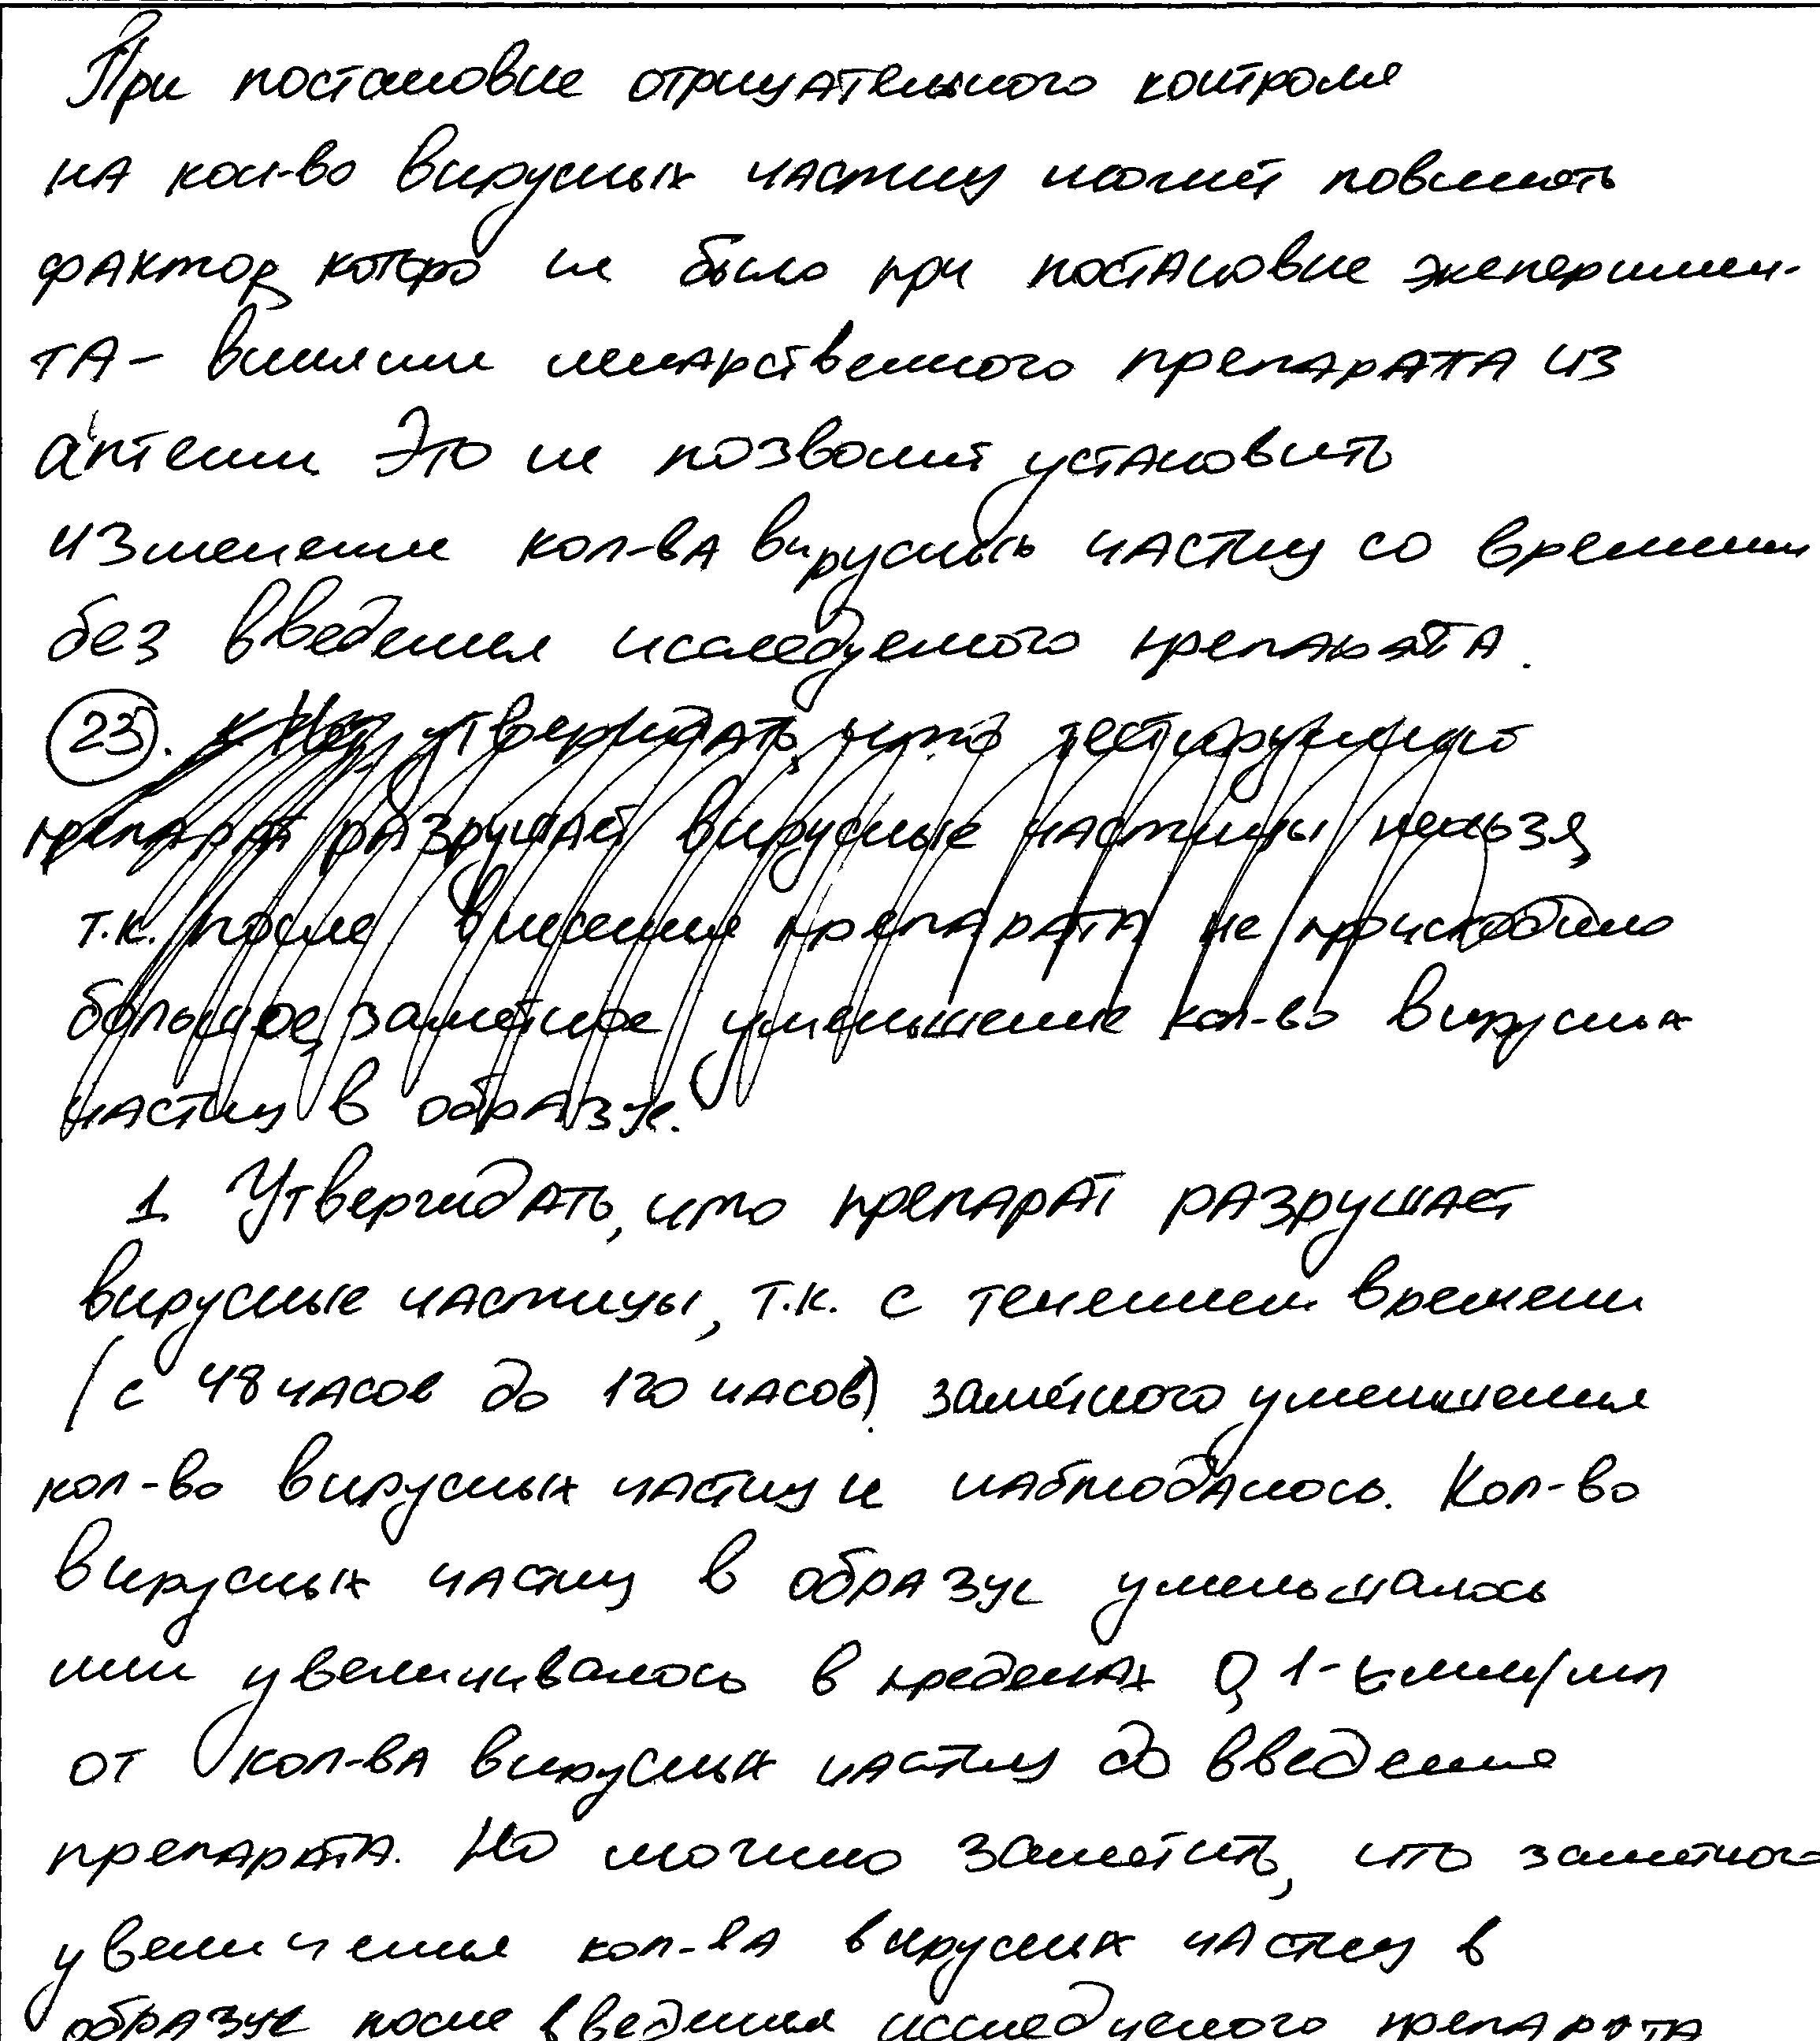 При постановке отрицательного контроля
на кол-во вирусных частиц может повлиять
фактор, которо не было при постановке эксперимен-
та - влияние лекарственного препарата из
аптеки Это не позволит установить
изменение кол-ва вирусных частиц со временем
без введения исследуемого препарата.
23. утверждать, что тестируемый
препарат разрушает вирусные частицы нельзя,
т.к. после внесения препарата не происходило
большое, заметное уменьшение кол-во вирусных
частиц в образце.
1 Утверждать, что препарат разрушает
вирусные частицы, т.к. с течением времени
(с 48 часов до 120 часов) заметного уменьшения
кол-во вирусных частиц не наблюдалось. Кол-во
вирусных частиц в образце уменьшалось
или увеличивалось в пределах 0,1- млн/мл
от кол-ва вирусных частиц до введения
препарата. Но можно заметить, что заметного
увеличения кол-ва вирусных частиц в
образце после введения исследуемого препарата